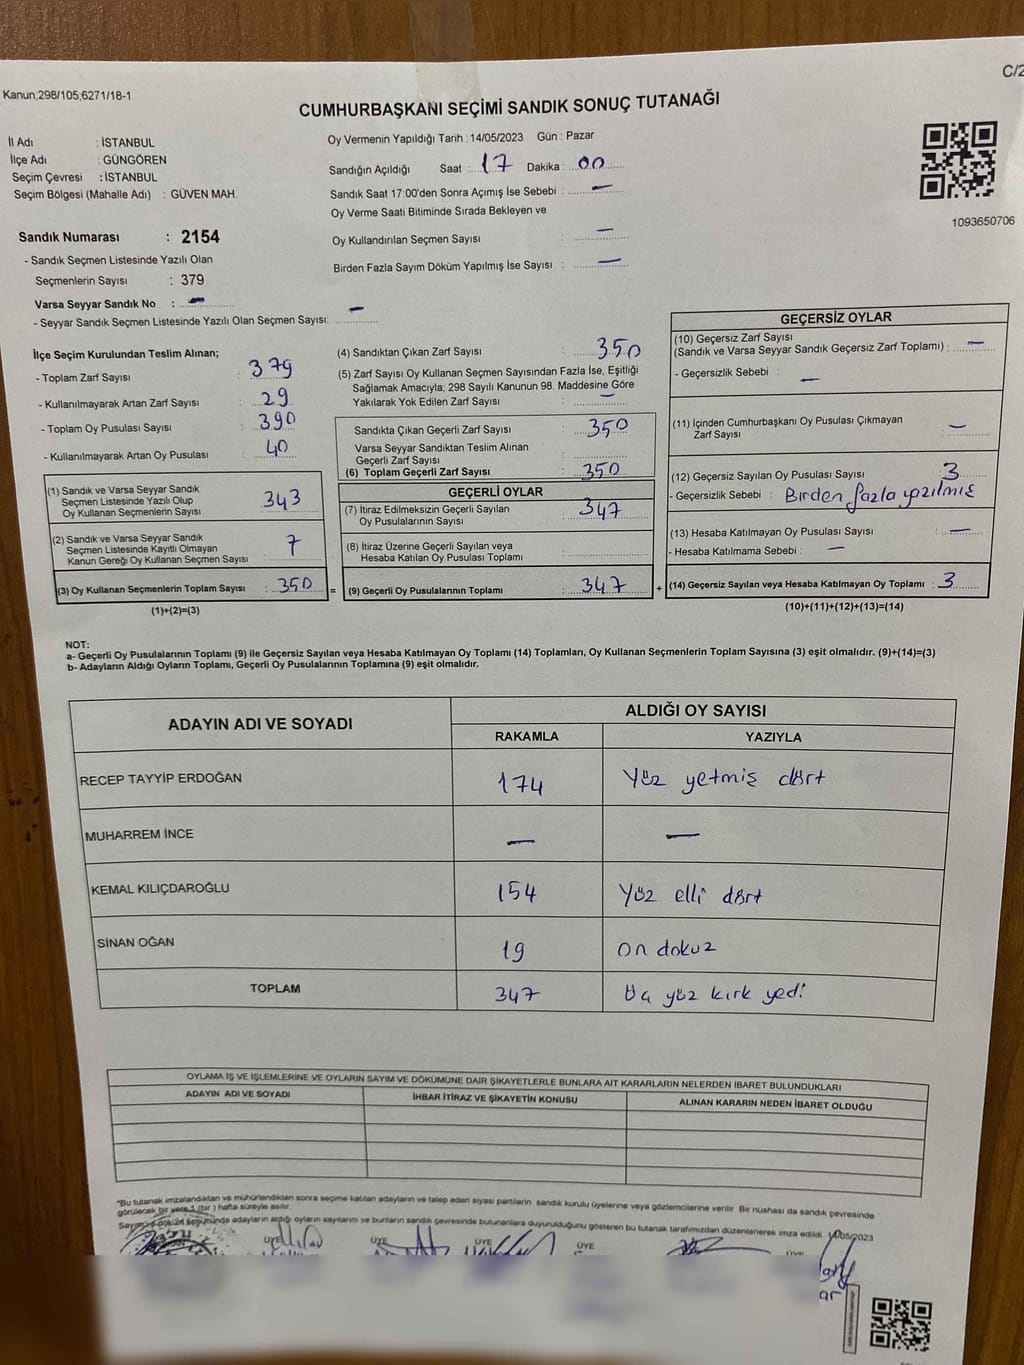 C/2
Kanun,298/105,6271/18-1
CUMHURBAŞKANI SEÇİMİ SANDIK SONUÇ TUTANAĞI
İl Adı : İSTANBUL
İlçe Adı : GÜNGÖREN
Seçim Çevresi : İSTANBUL
Seçim Bölgesi (Mahalle Adı) : GÜVEN MAH.
Oy Vermenin Yapıldığı Tarih : 14/05/2023 Gün : Pazar
Sandığın Açıldığı Saat : 17 Dakika : 00
Sandık Saat 17:00'den Sonra Açımış İse Sebebi : —
Oy Verme Saati Bitiminde Sırada Bekleyen ve
Oy Kullandırılan Seçmen Sayısı : —
Birden Fazla Sayım Döküm Yapılmış İse Sayısı : —
1093650706
Sandık Numarası : 2154
- Sandık Seçmen Listesinde Yazılı Olan
Seçmenlerin Sayısı : 379
Varsa Seyyar Sandık No : —
- Seyyar Sandık Seçmen Listesinde Yazılı Olan Seçmen Sayısı: —
İlçe Seçim Kurulundan Teslim Alınan;
- Toplam Zarf Sayısı : 379
- Kullanılmayarak Artan Zarf Sayısı : 29
- Toplam Oy Pusulası Sayısı : 390
- Kullanılmayarak Artan Oy Pusulası : 40
(1) Sandık ve Varsa Seyyar Sandık
Seçmen Listesinde Yazılı Olup
Oy Kullanan Seçmenlerin Sayısı : 343
(2) Sandık ve Varsa Seyyar Sandık
Seçmen Listesinde Kayıtlı Olmayan
Kanun Gereği Oy Kullanan Seçmen Sayısı : 7
(3) Oy Kullanan Seçmenlerin Toplam Sayısı : 350 =
(1)+(2)=(3)
(4) Sandıktan Çıkan Zarf Sayısı : 350
(5) Zarf Sayısı Oy Kullanan Seçmen Sayısından Fazla İse, Eşitliği
Sağlamak Amacıyla; 298 Sayılı Kanunun 98. Maddesine Göre
Yakılarak Yok Edilen Zarf Sayısı : —
Sandıkta Çıkan Geçerli Zarf Sayısı : 350
Varsa Seyyar Sandıktan Teslim Alınan
Geçerli Zarf Sayısı :
(6) Toplam Geçerli Zarf Sayısı : 350
GEÇERLİ OYLAR
(7) İtiraz Edilmeksizin Geçerli Sayılan
Oy Pusulalarının Sayısı : 347
(8) İtiraz Üzerine Geçerli Sayılan veya
Hesaba Katılan Oy Pusulası Toplamı :
(9) Geçerli Oy Pusulalarının Toplamı : 347 +
GEÇERSİZ OYLAR
(10) Geçersiz Zarf Sayısı
(Sandık ve Varsa Seyyar Sandık Geçersiz Zarf Toplamı) : —
- Geçersizlik Sebebi : —
(11) İçinden Cumhurbaşkanı Oy Pusulası Çıkmayan
Zarf Sayısı : —
(12) Geçersiz Sayılan Oy Pusulası Sayısı : 3
- Geçersizlik Sebebi : Birden fazla yazılmış
(13) Hesaba Katılmayan Oy Pusulası Sayısı : —
- Hesaba Katılmama Sebebi : —
(14) Geçersiz Sayılan veya Hesaba Katılmayan Oy Toplamı : 3
(10)+(11)+(12)+(13)=(14)
NOT:
a- Geçerli Oy Pusulalarının Toplamı (9) ile Geçersiz Sayılan veya Hesaba Katılmayan Oy Toplamı (14) Toplamları, Oy Kullanan Seçmenlerin Toplam Sayısına (3) eşit olmalıdır. (9)+(14)=(3)
b- Adayların Aldığı Oyların Toplamı, Geçerli Oy Pusulalarının Toplamına (9) eşit olmalıdır.
ADAYIN ADI VE SOYADI
ALDIĞI OY SAYISI
RAKAMLA YAZIYLA
RECEP TAYYİP ERDOĞAN 174 Yüz yetmiş dört
MUHARREM İNCE — —
KEMAL KILIÇDAROĞLU 154 Yüz elli dört
SİNAN OĞAN 19 on dokuz
TOPLAM 347 Üç yüz kırk yedi
OYLAMA İŞ VE İŞLEMLERİNE VE OYLARIN SAYIM VE DÖKÜMÜNE DAİR ŞİKAYETLERLE BUNLARA AİT KARARLARIN NELERDEN İBARET BULUNDUKLARI
ADAYIN ADI VE SOYADI İHBAR İTİRAZ VE ŞİKAYETİN KONUSU ALINAN KARARIN NEDEN İBARET OLDUĞU
"Bu tutanak imzalandıktan ve mühürlendikten sonra seçime katılan adayların ve talep eden siyasi partilerin sandık kurulu üyelerine veya gözlemcilerine verilir. Bir nüshası da sandık çevresinde
görülecek bir yere 1 (bir) hafta süreyle asılır.
Sayım ve döküm sonucunda adayların aldığı oyların sayılarını ve bunların sandık çevresinde bulunanlara duyurulduğunu gösteren bu tutanak tarafımızdan düzenlenerek imza edildi. 14/05/2023
ÜYE ÜYE ÜYE ÜYE ÜYE